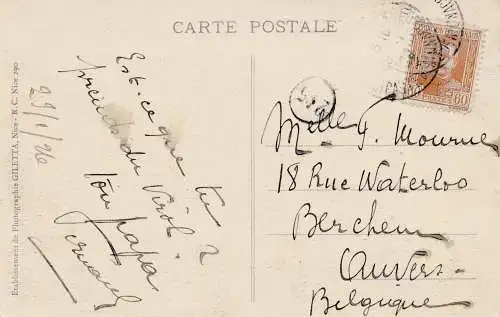 CARTE POSTALE
Etablissement de Photographie GILETTA, Nice - R. C. Nice 290
29/1/26
Est-ce que tu
prends du Virol?
ton papa
Fernand
Melle F. Mourue
18 Rue Waterloo
Berchem
Anvers
Belgique